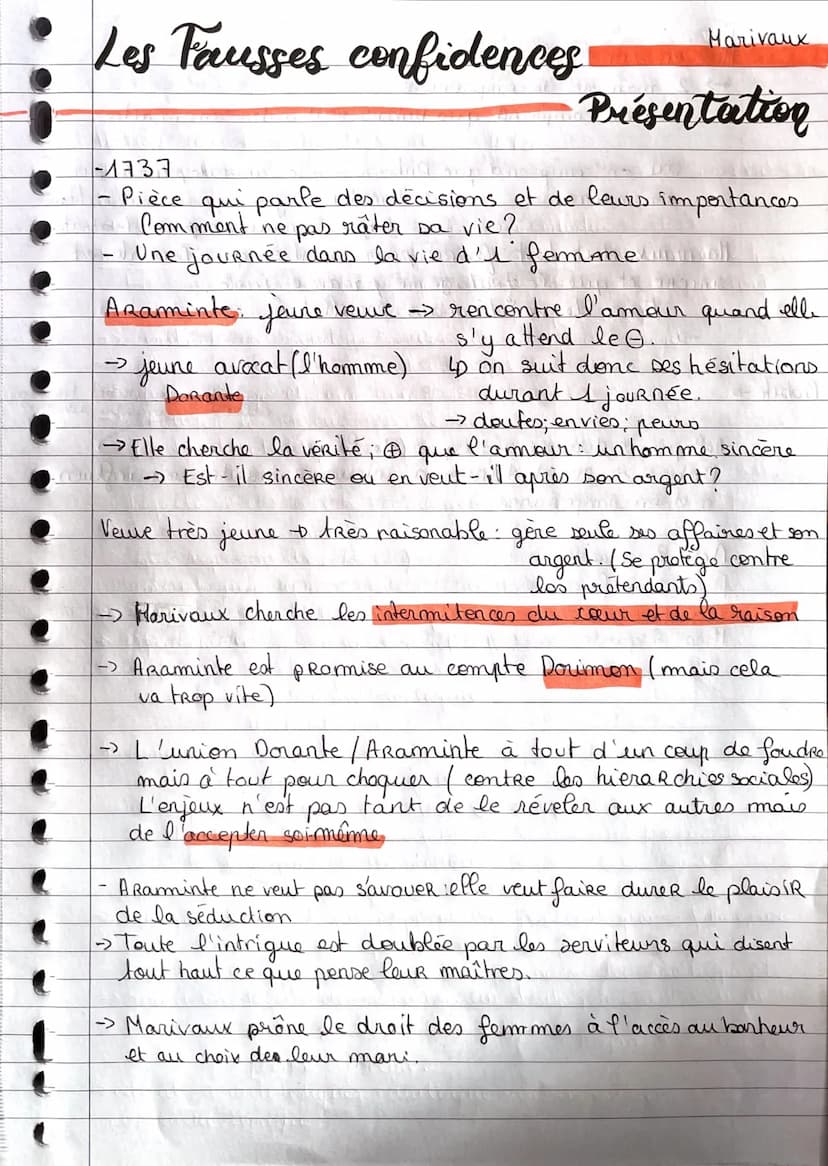 Les Fausses confidences
Marivaux
Présentation
-1737
- Pièce qui parle des décisions et de leurs importances
Comment ne pas râter sa vie?
- Une journée dans la vie d'1 femme
Araminte: jeune veuve → rencontre l'amour quand elle
s'y attend le ⊖.
→ jeune avocat (l'homme) ↳ on suit donc ses hésitations
Dorante durant 1 journée.
→ doutes; envies; peurs
→ Elle cherche la vérité; ⊕ que l'amour: un homme sincère
→ Est-il sincère ou en veut-il après son argent?
Veuve très jeune → très raisonable: gère seule ses affaires et son
argent. (Se protège contre
les prétendants)
→ Marivaux cherche les intermitences du cœur et de la raison
→ Araminte est promise au compte Dorimon (mais cela
va trop vite)
→ L'union Dorante / Araminte à tout d'un coup de foudre
mais à tout pour choquer (contre les hierarchies sociales)
L'enjeux n'est pas tant de le réveler aux autres mais
de l'accepter soi-même
- Araminte ne veut pas s'avouer: elle veut faire durer le plaisir
de la séduction
→ Toute l'intrigue est doublée par les serviteurs qui disent
tout haut ce que pense leur maîtres.
→ Marivaux prône le droit des femmes à l'accès au bonheur
et au choix de leur mari.